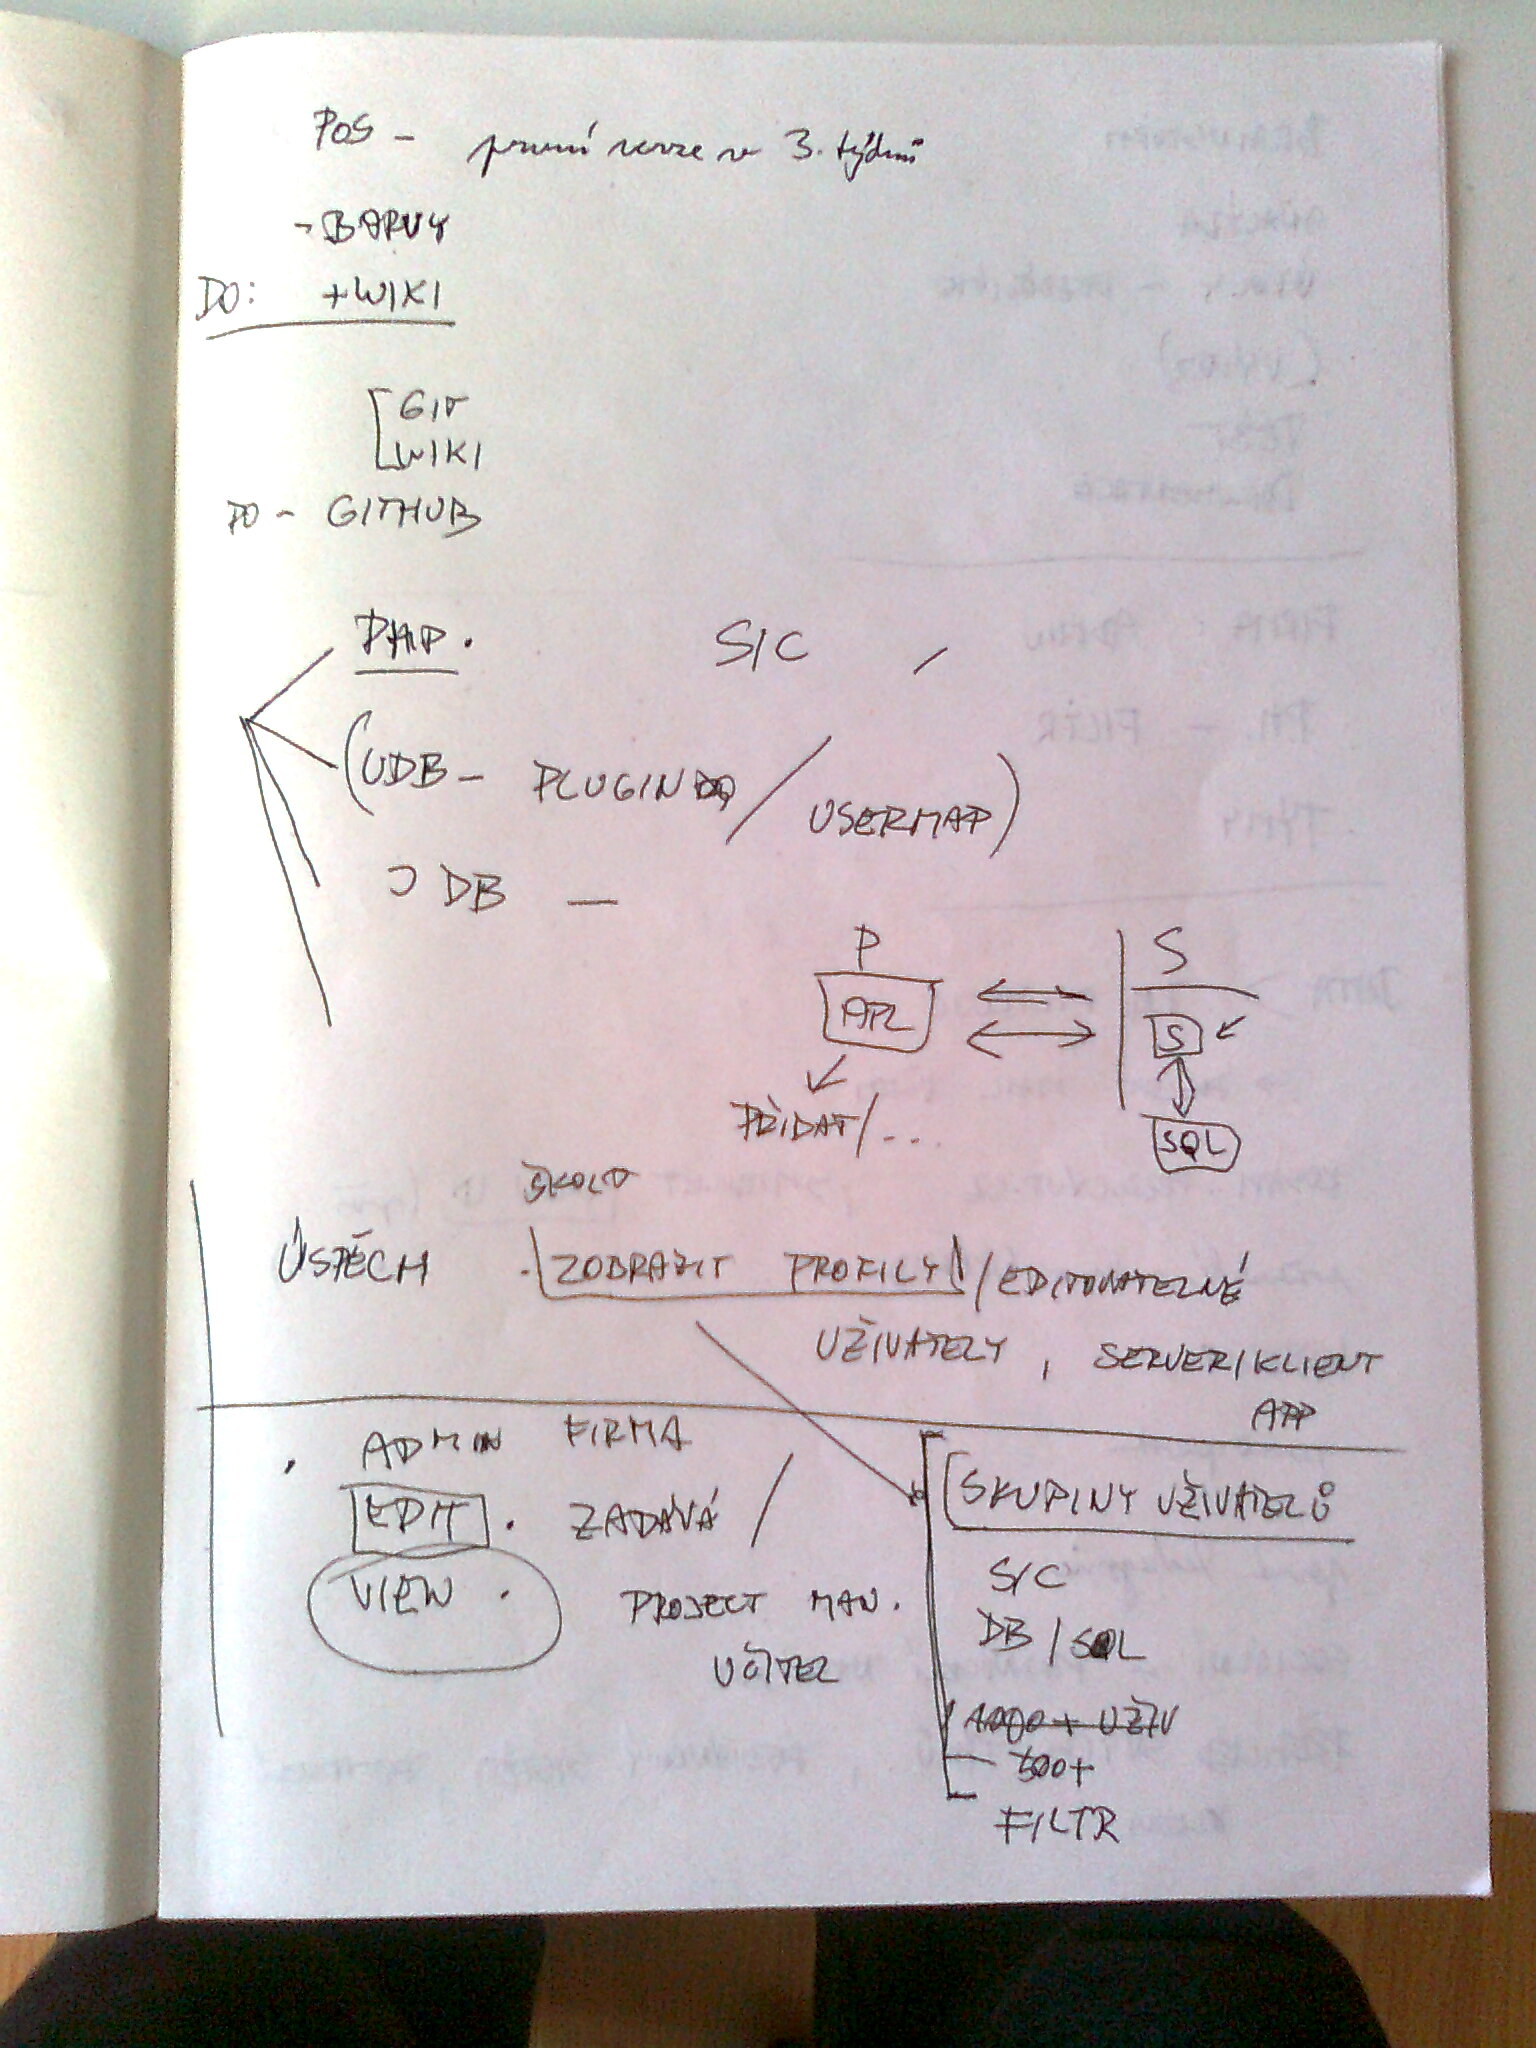 POS - první verze v 3. týdnu
- BARVY
DO: + WIKI
GIT
WIKI
DO - GITHUB
PHP. S/C
(UDB - PLUGIN / USERMAP)
DB —
P S
APL S
PŘIDAT/... SQL
ŠKOLA
ÚSPĚCH . ZOBRAZIT PROFILY / EDITOVATELNÉ
UŽIVATELY, SERVER/KLIENT
APP
. ADMIN FIRMA
EDIT . ZADÁVÁ /
VIEW . PROJECT MAN.
UČITEL
SKUPINY UŽIVATELŮ
S/C
DB / SQL
1000+ UŽIV
500+
FILTR